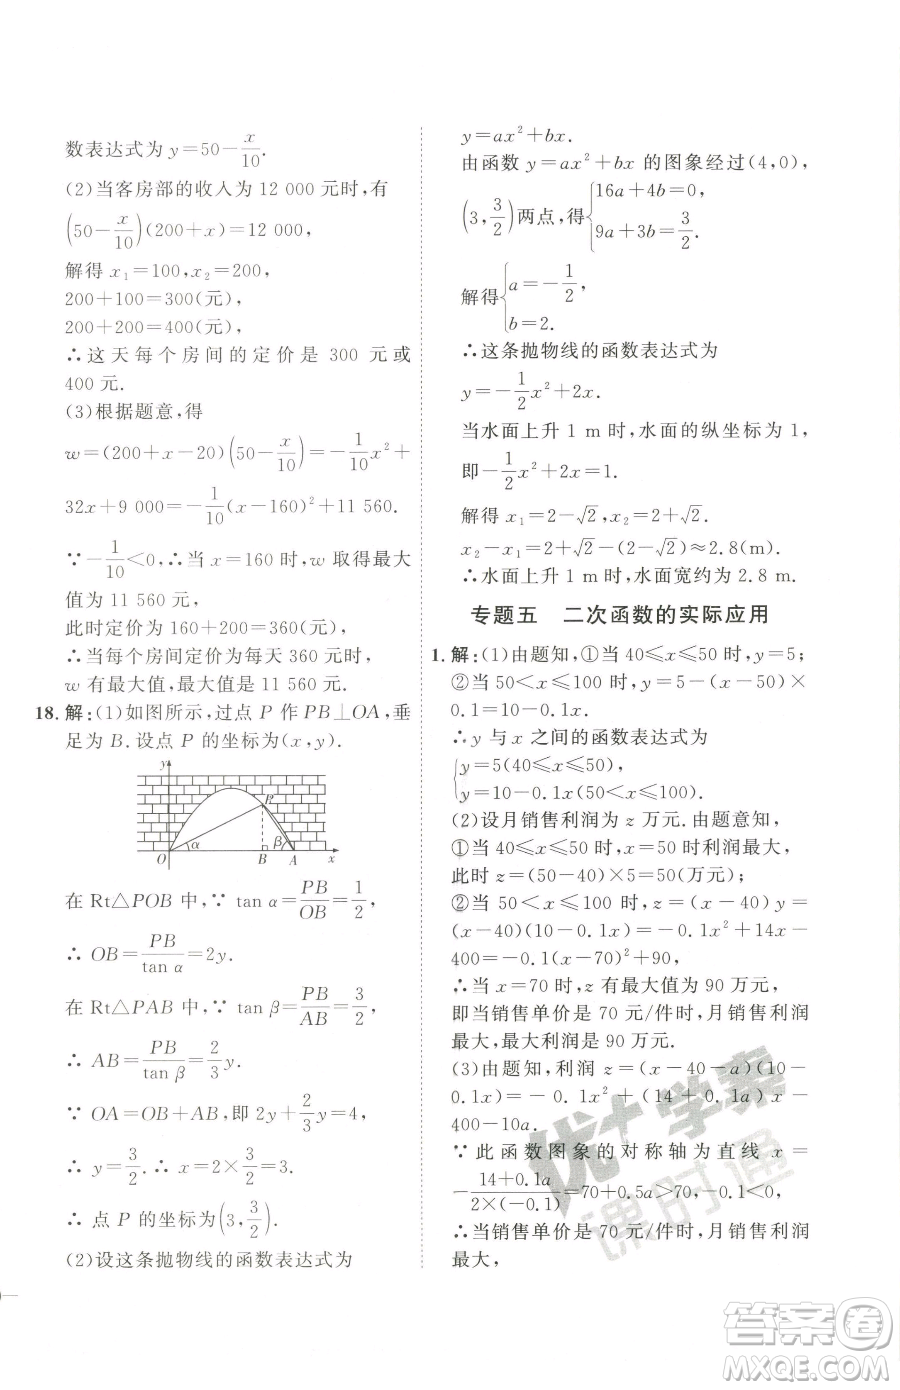 数表达式为 y=50-x/10.
(2)当客房部的收入为 12 000 元时,有
(50-x/10)(200+x)=12 000,
解得 x₁=100,x₂=200,
200+100=300(元),
200+200=400(元),
∴这天每个房间的定价是 300 元或
400 元.
(3)根据题意,得
w=(200+x-20)(50-x/10)=-1/10x²+
32x+9 000=-1/10(x-160)²+11 560.
∵-1/10<0,∴当 x=160 时,w 取得最大
值为 11 560 元,
此时定价为 160+200=360(元),
∴当每个房间定价为每天 360 元时,
w 有最大值,最大值是 11 560 元.
18.解:(1)如图所示,过点 P 作 PB⊥OA,垂
足为 B.设点 P 的坐标为(x,y).
y
P
α β
O B A x
在 Rt△POB 中,∵tan α=PB/OB=1/2,
∴OB=PB/tan α=2y.
在 Rt△PAB 中,∵tan β=PB/AB=3/2,
∴AB=PB/tan β=2/3y.
∵OA=OB+AB,即 2y+2/3y=4,
∴y=3/2.∴x=2×3/2=3.
∴点 P 的坐标为(3,3/2).
(2)设这条抛物线的函数表达式为
y=ax²+bx.
由函数 y=ax²+bx 的图象经过(4,0),
(3,3/2)两点,得{16a+4b=0,
9a+3b=3/2.
解得{a=-1/2,
b=2.
∴这条抛物线的函数表达式为
y=-1/2x²+2x.
当水面上升 1 m 时,水面的纵坐标为 1,
即-1/2x²+2x=1.
解得 x₁=2-√2,x₂=2+√2.
x₂-x₁=2+√2-(2-√2)≈2.8(m).
∴水面上升 1 m,水面宽约为 2.8 m.
专题五 二次函数的实际应用
1.解:(1)由题知,①当 40≤x≤50 时,y=5;
②当 50<x≤100 时,y=5-(x-50)×
0.1=10-0.1x.
∴y 与 x 之间的函数表达式为
{y=5(40≤x≤50),
y=10-0.1x(50<x≤100).
(2)设月销售利润为 z 万元.由题意知,
①当 40≤x≤50 时,x=50 时利润最大,
此时 z=(50-40)×5=50(万元),
②当 50<x≤100 时,z=(x-40)y=
(x-40)(10-0.1x)=-0.1x²+14x-
400=-0.1(x-70)²+90,
∴当 x=70 时,z 有最大值为 90 万元,
即当销售单价是 70 元/件时,月销售利润
最大,最大利润是 90 万元.
(3)由题知,利润 z=(x-40-a)(10-
0.1x)=-0.1x²+(14+0.1a)x-
400-10a.
∵此函数图象的对称轴为直线 x=
-14+0.1a/2×(-0.1)=70+0.5a>70,
∴当销售单价是 70 元时,月销售利润
最大,
优+学案
课时通
答案圈
MXQE.COM